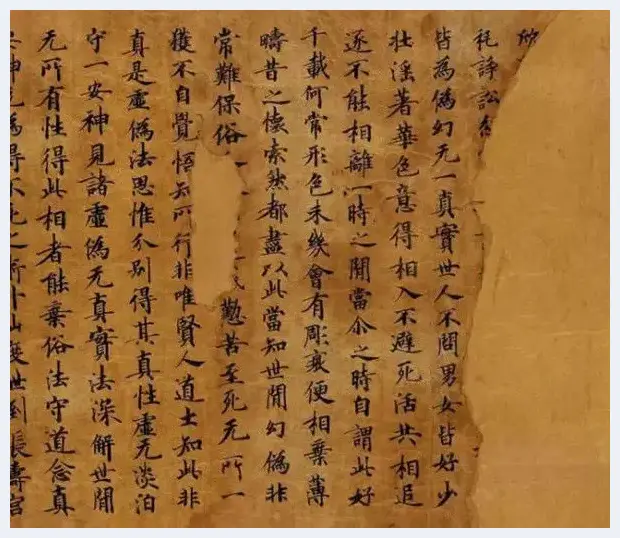 秖諍訟
皆為偽幻无一真實世人不問男女皆好少
壯淫著華色意得相入不避死活共相追
逐不能相離一時之間當尒之時自謂此好
千載何常形色未幾會有彫衰便相棄薄
疇昔之懷索然都盡以此當知世間幻偽非
常難保俗 勤苦至死无所一
獲不自覺悟知所行非唯賢人道士知此非
真是虛偽法思惟分別得其真性虛无淡泊
守一安神見諸虛偽无真實法深解世間
无所有性得此相者能棄俗法守道念真
安神 為得不死之 仙度世到長壽宮